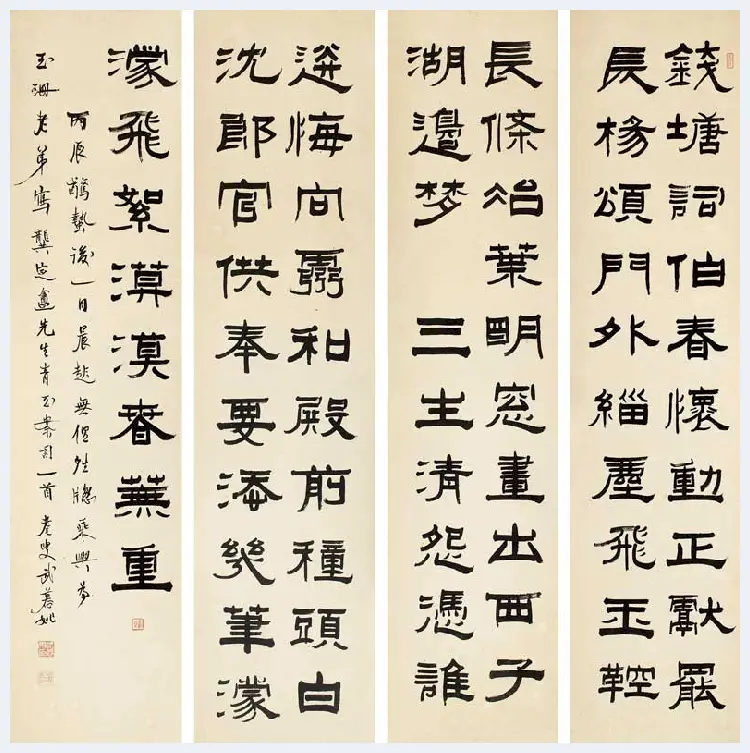 錢塘詞伯春懷動正獻罷
長楊頌門外緇塵飛玉鞚
長條冶葉明窓畫出西子
湖邊梦 三生清怨憑誰
送悔向靈和殿前種頭白
沈郎官供奉要添幾筆濛
濛飛絮漠漠春蕪重
丙辰驚蟄後一日晨起無俚牕乘興為
玉珊老弟寫龔定盦先生青玉案詞一首 老叟武慕姚